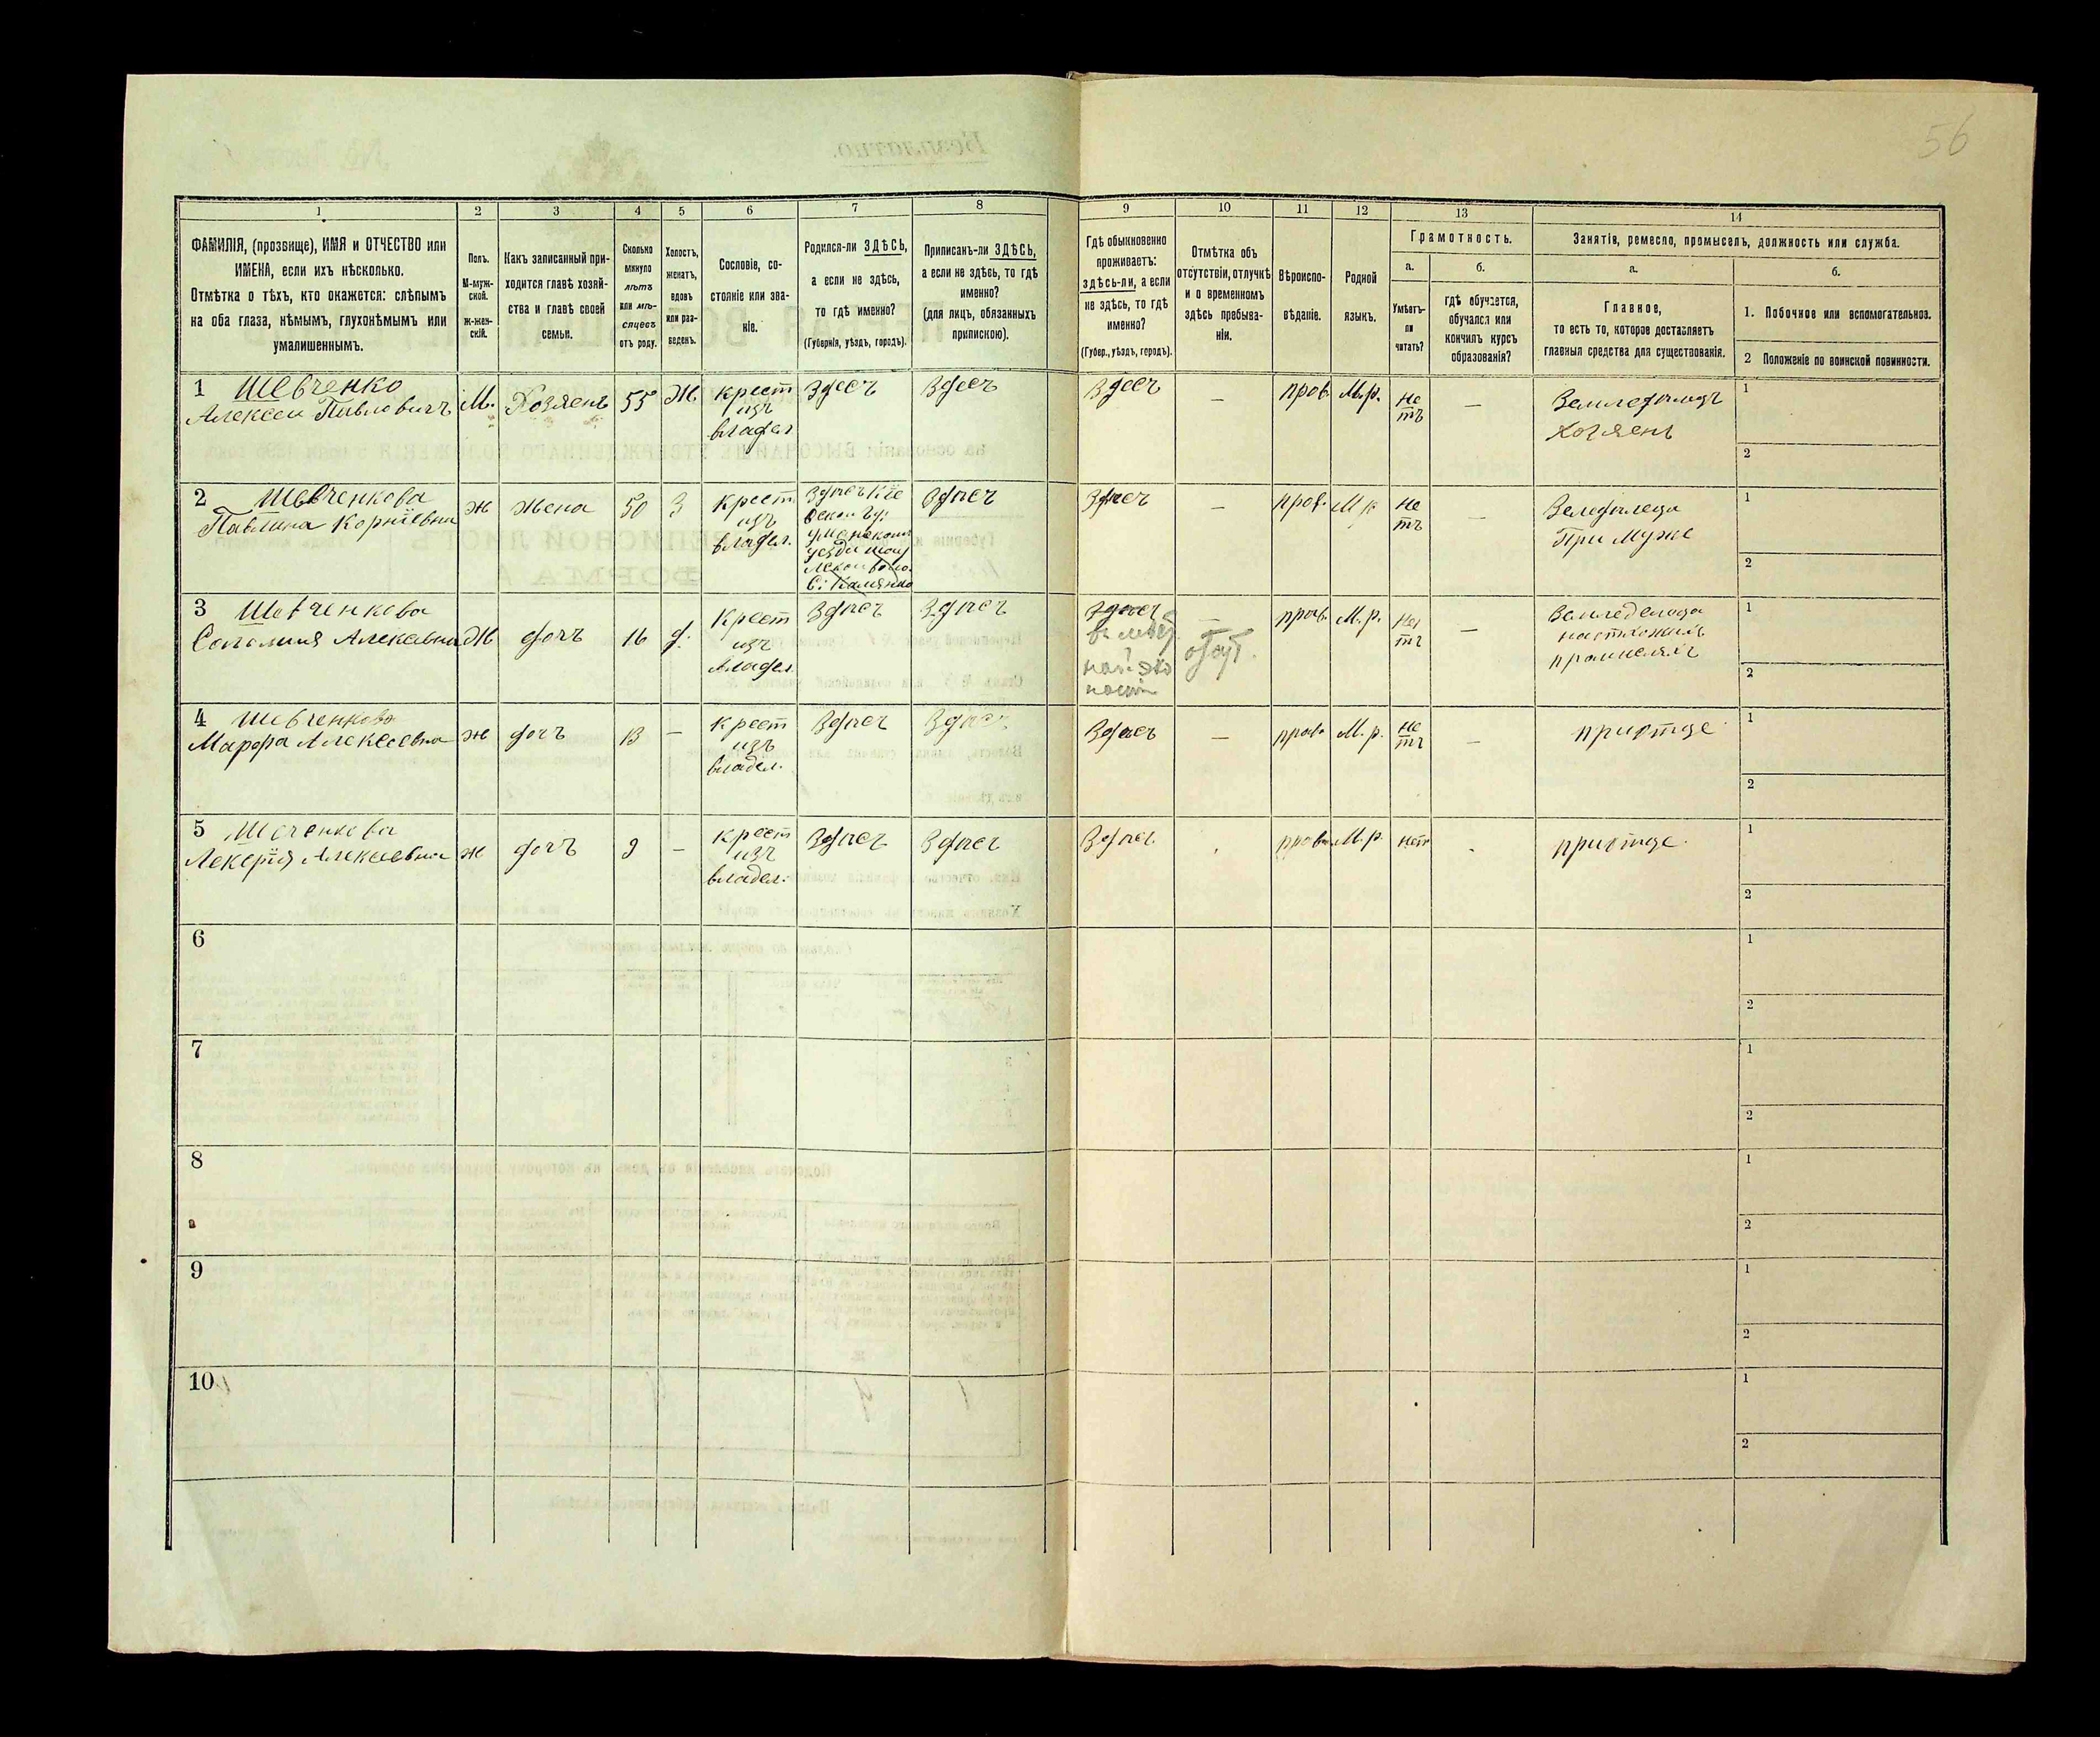 56
1 2 3 4 5 6 7 8 9 10 11 12 13 14
ФАМИЛІЯ, (прозвище), ИМЯ и ОТЧЕСТВО или
ИМЕНА, если ихъ нѣсколько.
Отмѣтка о тѣхъ, кто окажется: слѣпымъ
на оба глаза, нѣмымъ, глухонѣмымъ или
умалишеннымъ.
Полъ.
М-муж-
ской.
ж-жен-
скій.
Какъ записанный при-
ходится главѣ хозяй-
ства и главѣ своей
семьи.
Сколько
минуло
лѣтъ
или мѣ-
сяцевъ
отъ роду.
Холостъ,
женатъ,
вдовъ
или раз-
веденъ.
Сословіе, со-
стояніе или зва-
ніе.
Родился-ли ЗДѢСЬ,
а если не здѣсь,
то гдѣ именно?
(Губернія, уѣздъ, городъ).
Приписанъ-ли ЗДѢСЬ,
а если не здѣсь, то гдѣ
именно?
(для лицъ, обязанныхъ
припискою).
Гдѣ обыкновенно
проживаетъ:
здѣсь-ли, а если
не здѣсь, то гдѣ
именно?
(Губер., уѣздъ, городъ).
Отмѣтка объ
отсутствіи, отлучкѣ
и о временномъ
здѣсь пребыва-
ніи.
Вѣроиспо-
вѣданіе.
Родной
языкъ.
Грамотность.
а.
Умѣетъ-
ли
читать?
б.
гдѣ обучается,
обучался или
кончилъ курсъ
образованія?
Занятія, ремесло, промыселъ, должность или служба.
а.
Главное,
то есть то, которое доставляетъ
главныя средства для существованія.
б.
1. Побочное или вспомогательноз.
2 Положеніе по воинской повинности.
1 Шевченко
Алексеи Павловичъ
М.
Хозяенъ
55
Ж
крест
изъ
владел
Здесъ
Здесъ
Здесъ
—
прав.
М.р.
Не
тъ
—
Хозяенъ
1
2
2 Шевченкова
Павлина Корніевна
ж
жена
50
З
крест
изъ
владел.
Здпсъ
Здпсъ
—
прав.
М р
Не
тъ
—
При Муже
1
2
3 Шевченкова
Соломия Алексевна
Ж
дочъ
16
д.
Крест
изъ
владел
Здпсъ
Здпсъ
Здпсъ
—
прав.
М.р.
Не
тъ
—
1
2
4 Шевченкова
Марфа Алексеевна
ж
дочъ
13
—
крест
изъ
владел.
Здпсъ
Здпсъ
Здпсъ
—
прав.
М.р.
Не
тъ
—
приотце
1
2
5
Лекерія Алексевна
ж
дочъ
9
—
крест
изъ
владел.
Здпсъ
Здпсъ
Здпсъ
прав.
М.р.
нетъ
приотце.
1
2
6
1
2
7
1
2
8
1
2
9
1
2
10
1
2